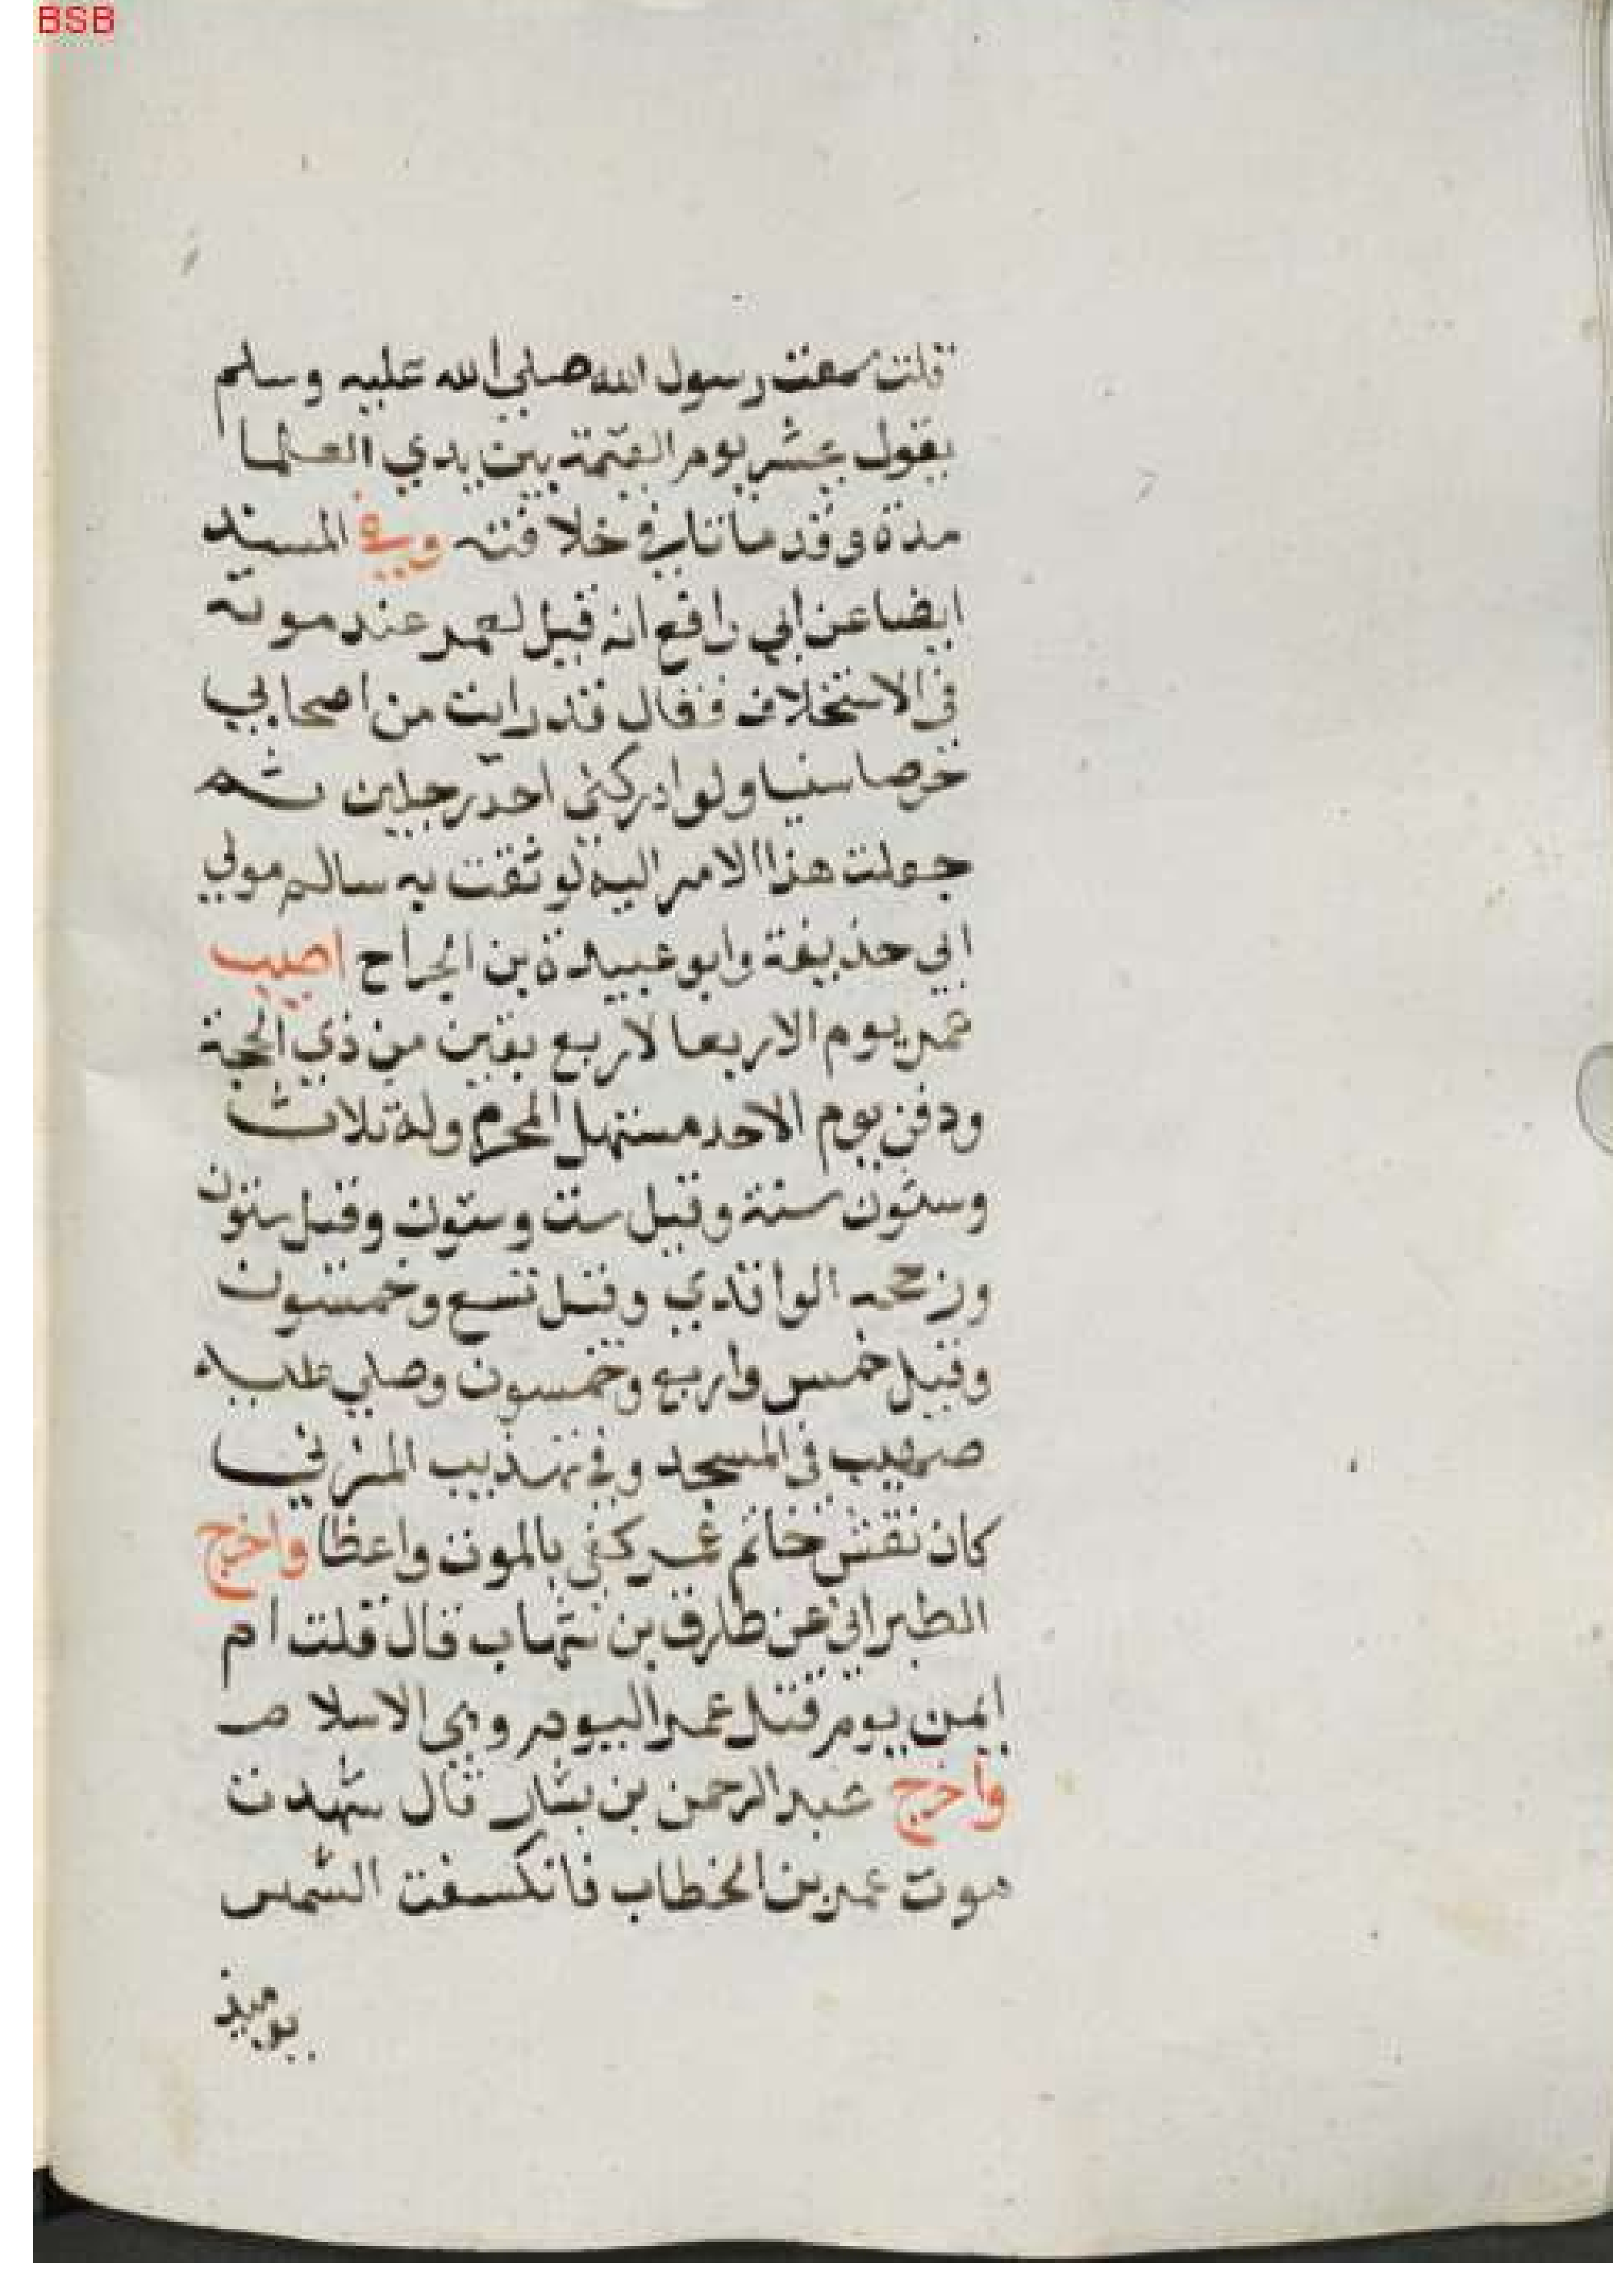 BSB
قلت سمعت رسول الله صلي الله عليه وسلم
يقول يحشر يوم القيمة بين يدي العلما
وقد مات في خلافته وفي المسند
ايضا عن ابي رافع انه قيل لعمر عند موته
في الاستخلاف فقال قد رايت من اصحابي
حرصا سيا ولو ادركني احد رجلين ثم
جعلت هذا الامر اليه لوثقت به سالم مولي
ابي حذيفة وابو عبيدة بن الجراح اصيب
عمر يوم الاربعا لاربع بقين من ذي الحجة
ودفن يوم الاحد مستهل المحرم وله ثلاث
وستون سنة وقيل ست وستون وقيل ستون
ورجحه الواقدي وقيل تسع وخمسون
وقيل خمس واربع وخمسون وصلي عليه
صهيب في المسجد وفي تهذيب المزني
كان نقش خاتم عمر كفي بالموت واعظا واخرج
الطبراني عن طارق بن شهاب قال قلت ام
ايمن يوم قتل عمر اليوم وهي الاسلام
واخرج عبد الرحمن بن يسار قال شهدت
موت عمر بن الخطاب فانكسفت الشمس
يوميذ